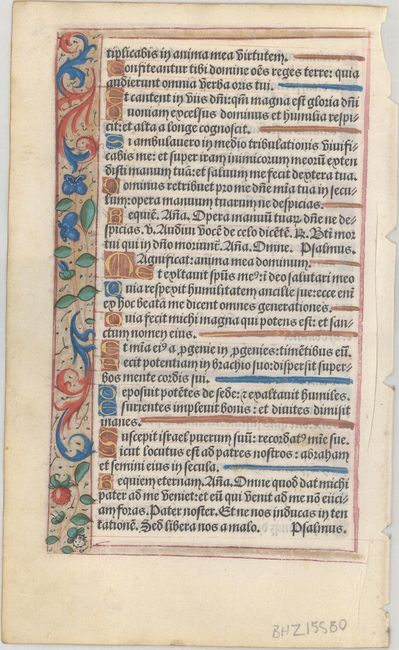 tiplicabis in anima mea virtutem.
Confiteantur tibi domine oēs reges terre: quia
audierunt omnia verba oris tui.
Et cantent in viis dñi: qm̄ magna est gloria dñi
Quoniam excelsus dominus et humilia respi
cit: et alta a longe cognoscit.
Si ambulavero in medio tribulationis vivifi
cabis me: et super iram inimicorum meorū exten
disti manum tuā: et salvum me fecit dextera tua.
Dominus retribuet pro me dñe mīa tua in secu
lum: opera manuum tuarum ne despicias.
Requiē. Aña. Opera manuū tuaꝝ dñe ne de
spicias. v. Audivi vocē de celo dicētē. ꝶ. Bti mor
tui qui in dño moriunt̄. Aña. Omne. Psalmus.
Magnificat: anima mea dominum.
Et exultavit spūs meꝰ: ī deo salutari meo
Quia respexit humilitatem ancille sue: ecce em̄
ex hoc beatā me dicent omnes generationes.
Quia fecit michi magna qui potens est: et san
ctum nomen eius.
Et mīa eiꝰ a ꝓgenie in ꝓgenies: timētibus eū.
Fecit potentiam in brachio suo: dispersit super
bos mente cordis sui.
Deposuit potētes de sede: ⁊ exaltavit humiles.
Esurientes implevit bonis: et divites dimisit
inanes.
Suscepit israel puerum suū: recordatꝰ mīe sue.
Sicut locutus est ad patres nostros: abraham
et semini eius in secula.
Requiem eternam. Aña. Omne quod dat michi
pater ad me veniet: et eū qui venit ad me nō eiici
am foras. Pater noster. Et ne nos inducas in ten
tationē. Sed libera nos a malo. Psalmus.
BHZ15SB0